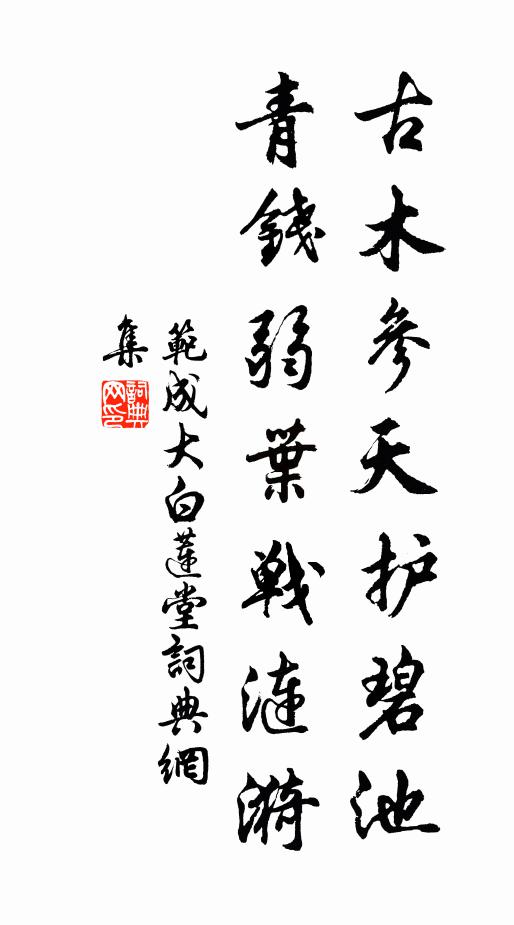 古木参天护碧池
青錢弱葉戰漣漪
範成大白蓮堂詞典網
集
詞典
网印